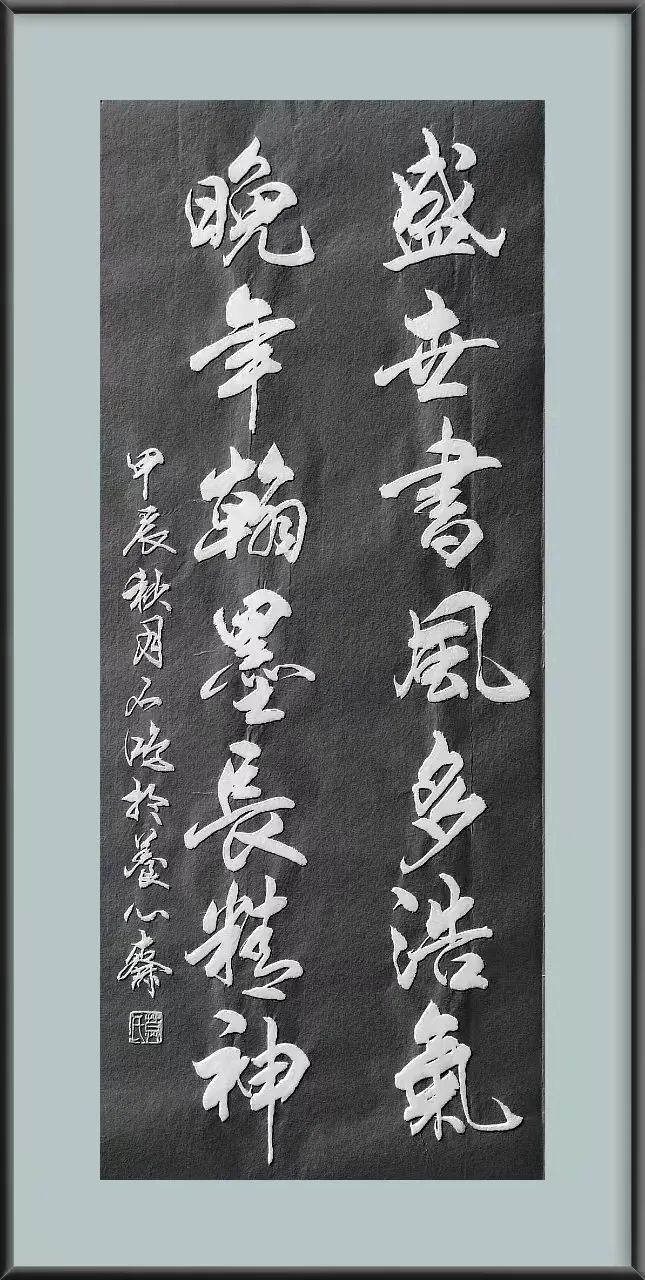 盛世書風多浩氣
晚年翰墨長精神
甲辰秋月石鴻於養心齋